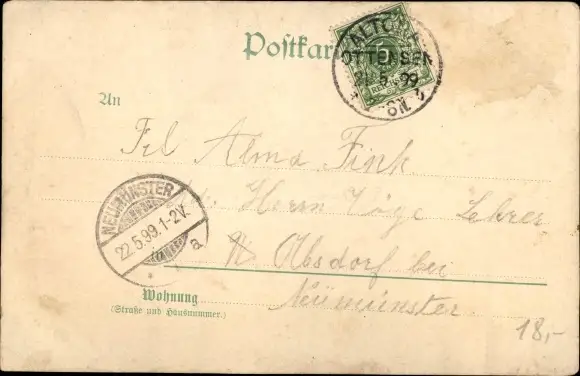 Postkar
ALTONA
OTTENSEN
5 99
5
REICHS
An
Frl Alma Fink
Herrn Voge Lehrer
NEUMÜNSTER
22.5.99.1-2V.
a
in bei
Neumünster
Wohnung
(Straße und Hausnummer.)
18,-